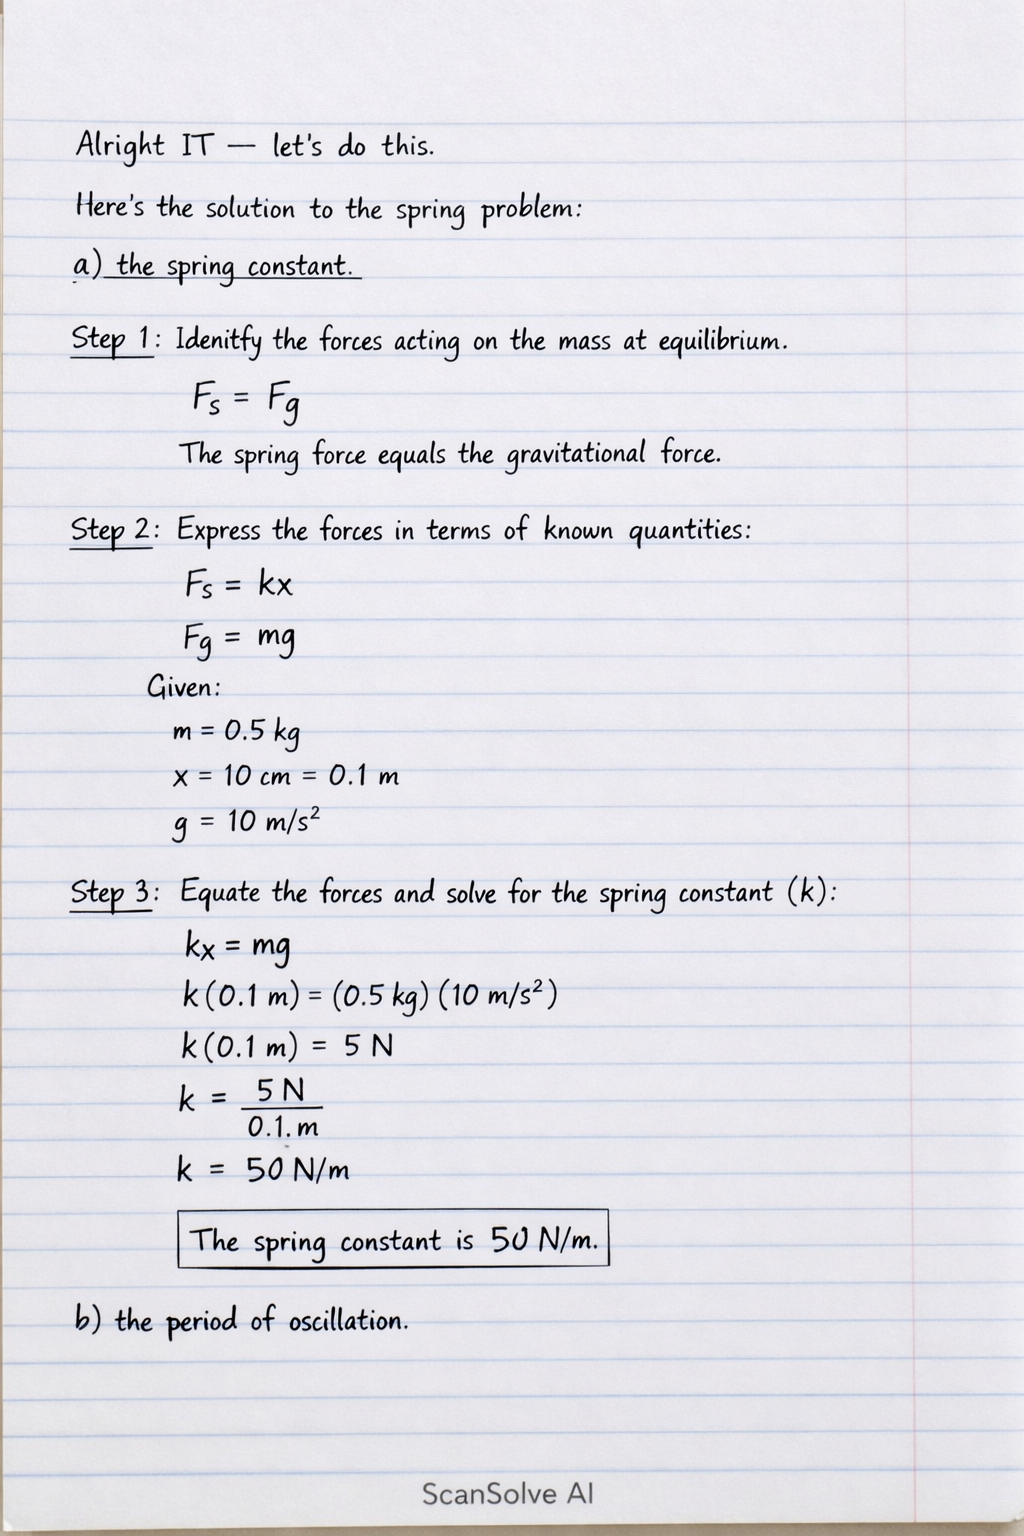 Alright IT — let's do this.
Here's the solution to the spring problem:
a) the spring constant.
Step 1: Idenitfy the forces acting on the mass at equilibrium.
Fs = Fg
The spring force equals the gravitational force.
Step 2: Express the forces in terms of known quantities:
Fs = kx
Fg = mg
Given:
m = 0.5 kg
x = 10 cm = 0.1 m
g = 10 m/s²
Step 3: Equate the forces and solve for the spring constant (k):
kx = mg
k(0.1 m) = (0.5 kg) (10 m/s²)
k(0.1 m) = 5 N
k = 5 N
0.1. m
k = 50 N/m
The spring constant is 50 N/m.
b) the period of oscillation.
ScanSolve AI